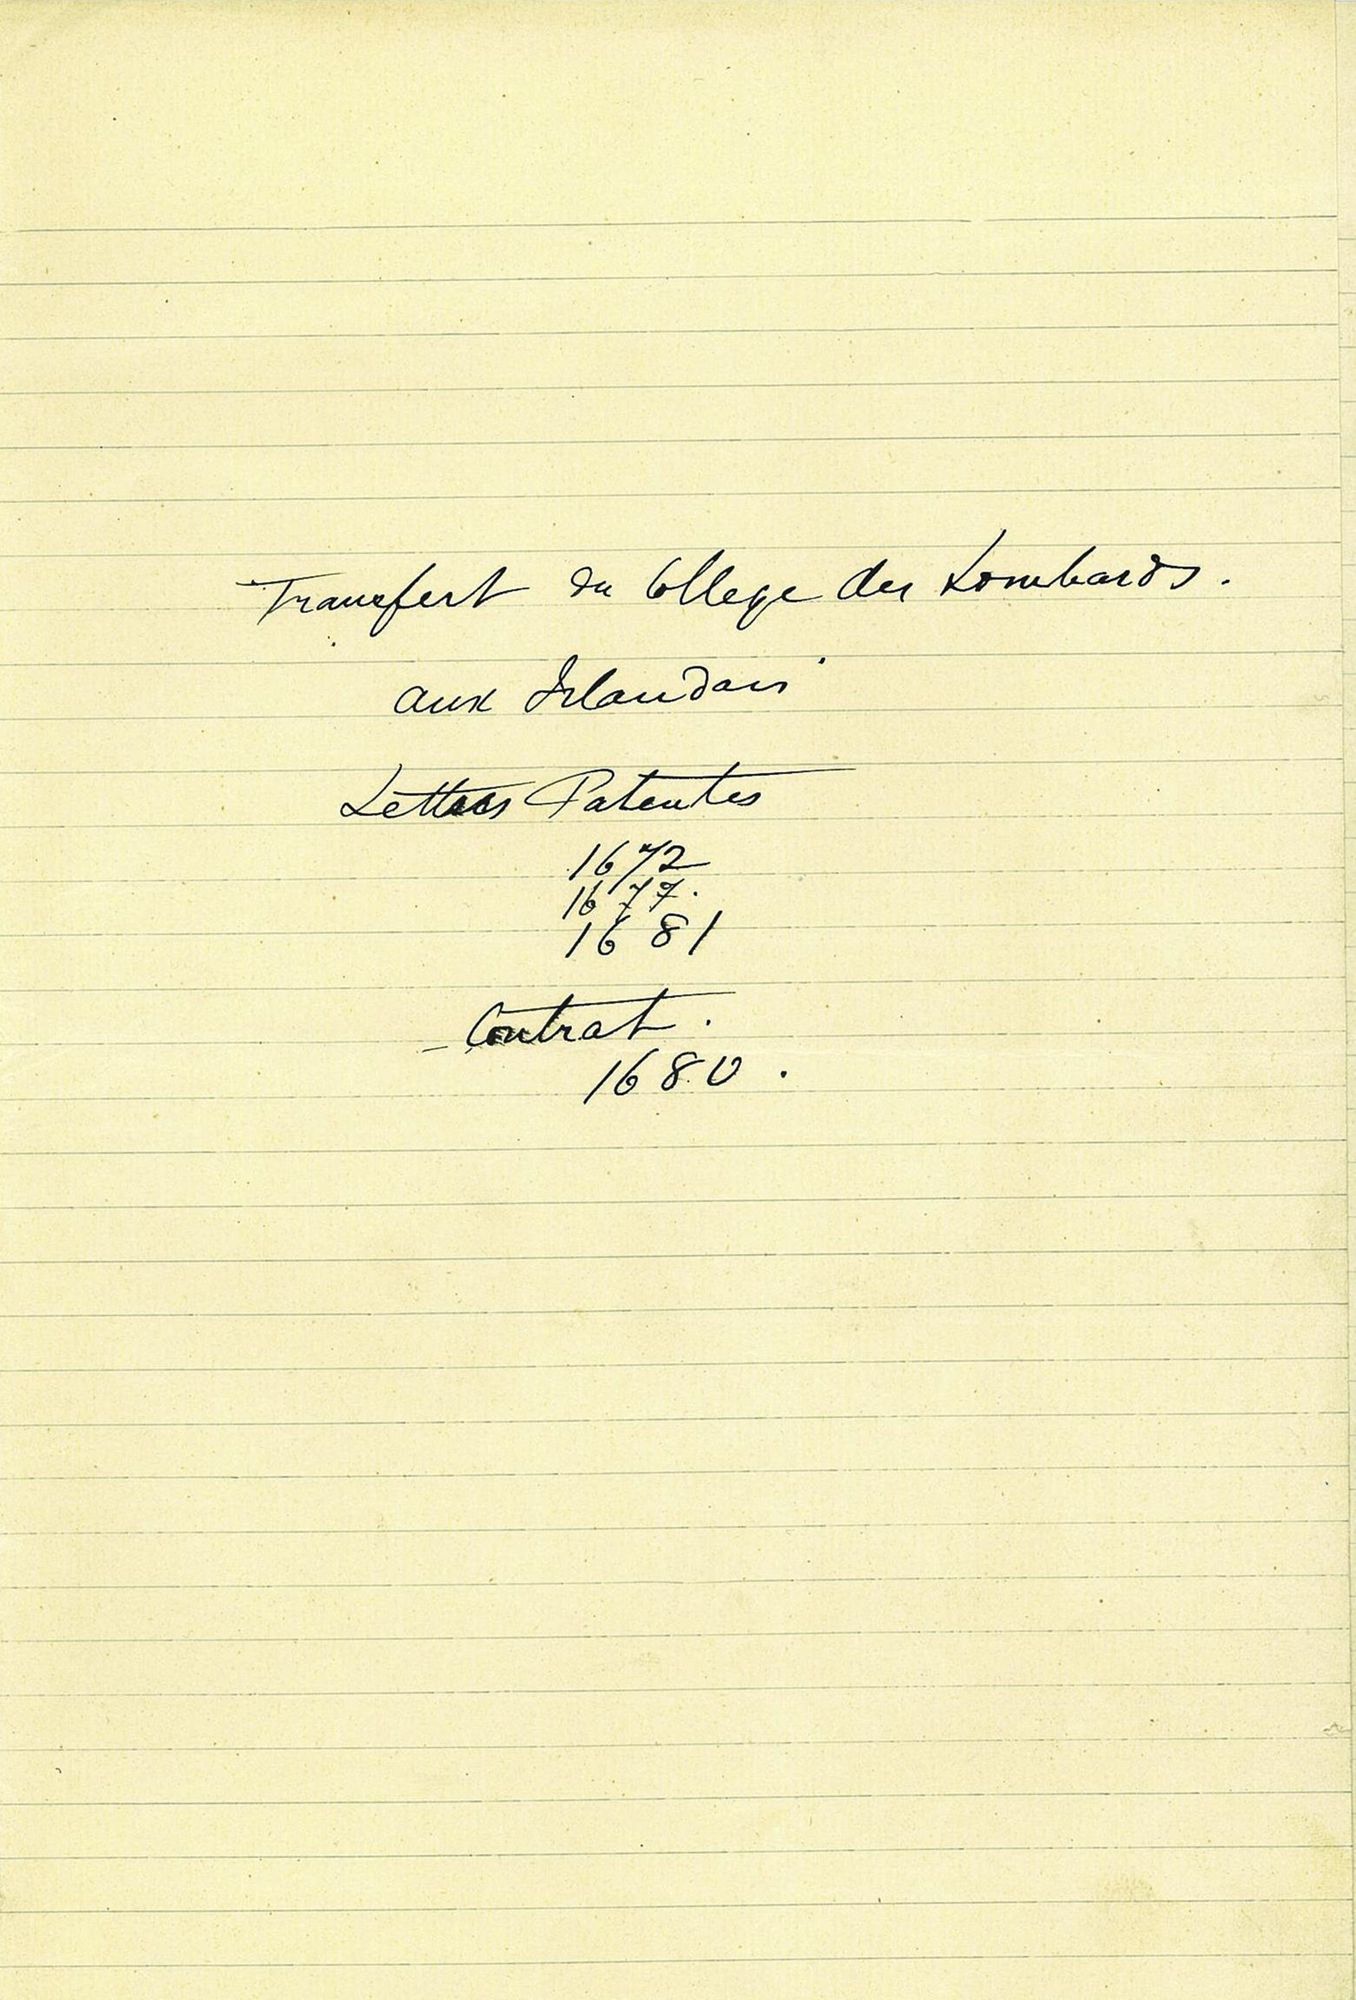 Transfert du College des Lombards.
aux Irlandais
Lettres Patentes
1672
1677.
1681
- Contrat.
1680.